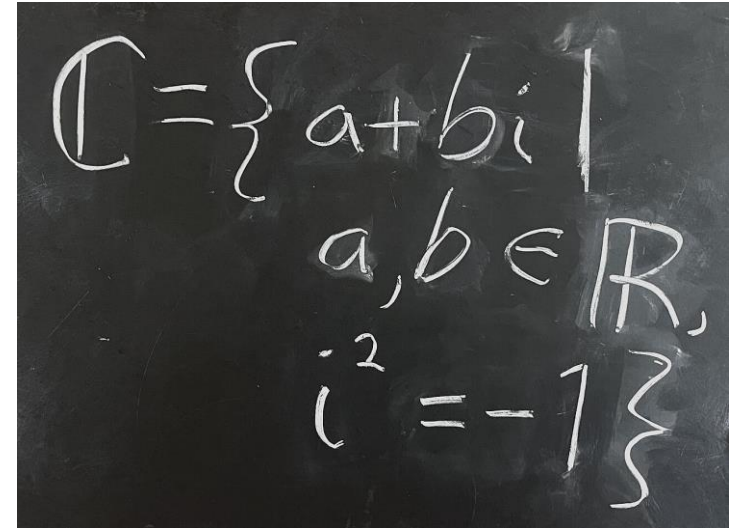 ℂ={a+bi|
a,b∈ℝ,
i²=-1}